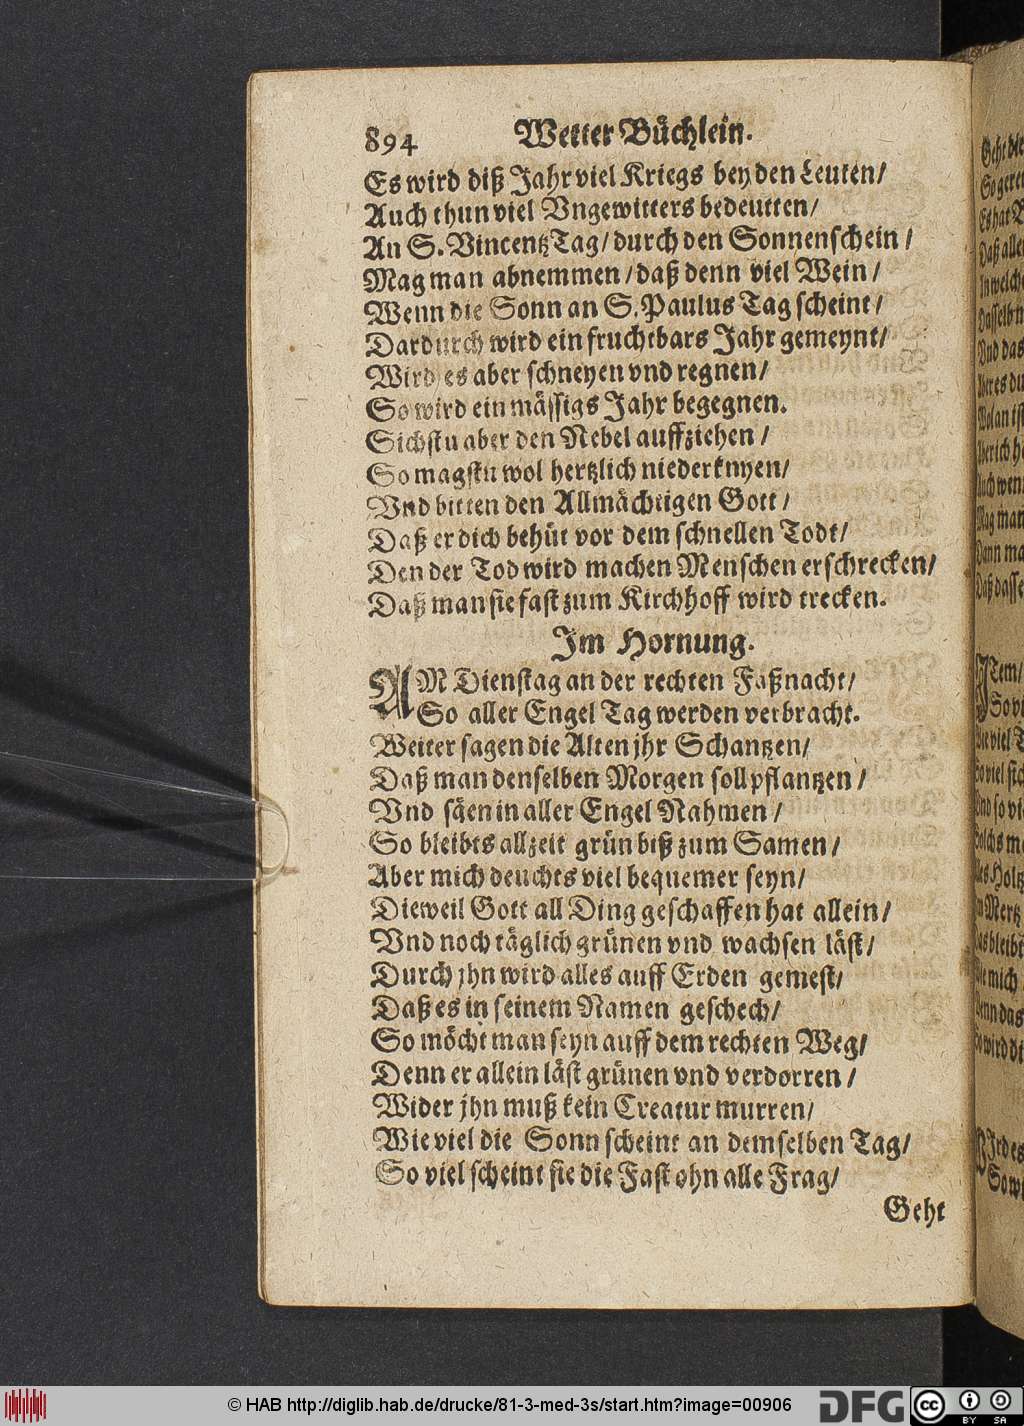 894 Wetter Büchlein.
Es wird diß Jahr viel Kriegs bey den Leuten/
Auch thun viel Vngewitters bedeutten/
An S. Vincentz Tag/ durch den Sonnenschein/
Mag man abnemmen/ daß denn viel Wein/
Wenn die Sonn an S. Paulus Tag scheint/
Dardurch wird ein fruchtbars Jahr gemeynt/
Wird es aber schneyen vnd regnen/
So wird ein mässigs Jahr begegnen.
Sichstu aber den Nebel auffziehen/
So magstu wol hertzlich niederknyen/
Vnd bitten den Allmächtigen Gott/
Daß er dich behüt vor dem schnellen Todt/
Den der Tod wird machen Menschen erschrecken/
Daß man sie fast zum Kirchhoff wird trecken.
Im Hornung.
AM Dienstag an der rechten Faßnacht/
So aller Engel Tag werden verbracht.
Weiter sagen die Alten jhr Schantzen/
Daß man denselben Morgen soll pflantzen/
Vnd säen in aller Engel Nahmen/
So bleibts allzeit grün biß zum Samen/
Aber mich deuchts viel bequemer seyn/
Dieweil Gott all Ding geschaffen hat allein/
Vnd noch täglich grünen vnd wachsen läst/
Durch jhn wird alles auff Erden gemest/
Daß es in seinem Namen geschech/
So möcht man seyn auff dem rechten Weg/
Denn er allein läst grünen vnd verdorren/
Wider jhn muß kein Creatur murren/
Wie viel die Sonn scheint an demselben Tag/
So viel scheint sie die Fast ohn alle Frag/
Geht
© HAB http://diglib.hab.de/drucke/81-3-med-3s/start.htm?image=00906
DFG
cc BY SA